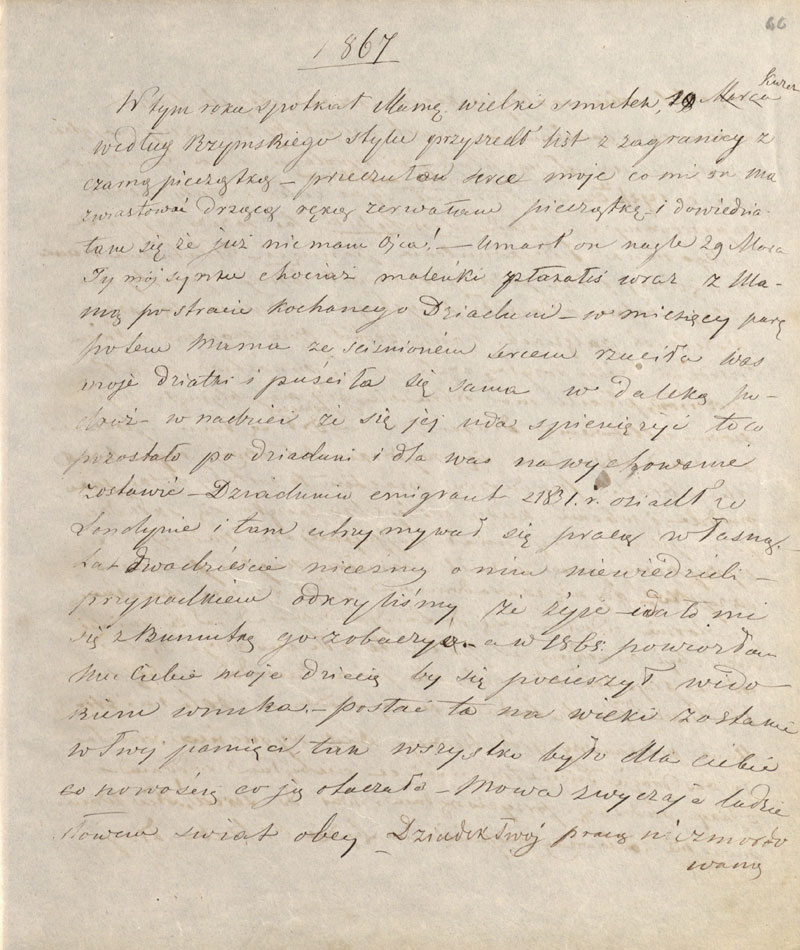 66
1867
W tym roku spotkał Mamę wielki smutek, 10
według Rzymskiego stylu przyszedł list z zagranicy z
czarną pieczątką – przeczułam serce moje co mi on ma
zwiastować drżącą ręką zerwałam pieczątkę – i dowiedzia-
łam się że już nie mam Ojca! – Umarł on nagle 29 Marca
Ty mój synku chociaż maleńki płakałeś wraz z Ma-
mą po stracie kochanego Dziaduni – w miesięcy parę
potem Mama ze ściśnionem sercem rzuciła was
moje dziatki i puściła się sama w daleką po-
dróż – w nadziei że się jej uda spieniężyć to co
pozostało po dziaduni i dla was na wychowanie
zostawić – Dziadunio emigrant z 1831. r. osiadł w
Londynie i tam utrzymywał się pracą własną. –
Lat dwadzieście niceśmy o nim niewiedzieli –
przypadkiem odkryliśmy że żyje – udało mi
się z Bunutką go zobaczyć – a w 1865 powiozłam
mu Ciebie moje dziecię by się pocieszył wido-
kiem wnuka. – postać ta na wieki zostanie
w Twej pamięci tak wszystko było dla ciebie
co nowością co ją otaczało – Mowa zwyczaje ludzie
słowem świat obcy – Dziadek Twój pracą niezmordo
waną